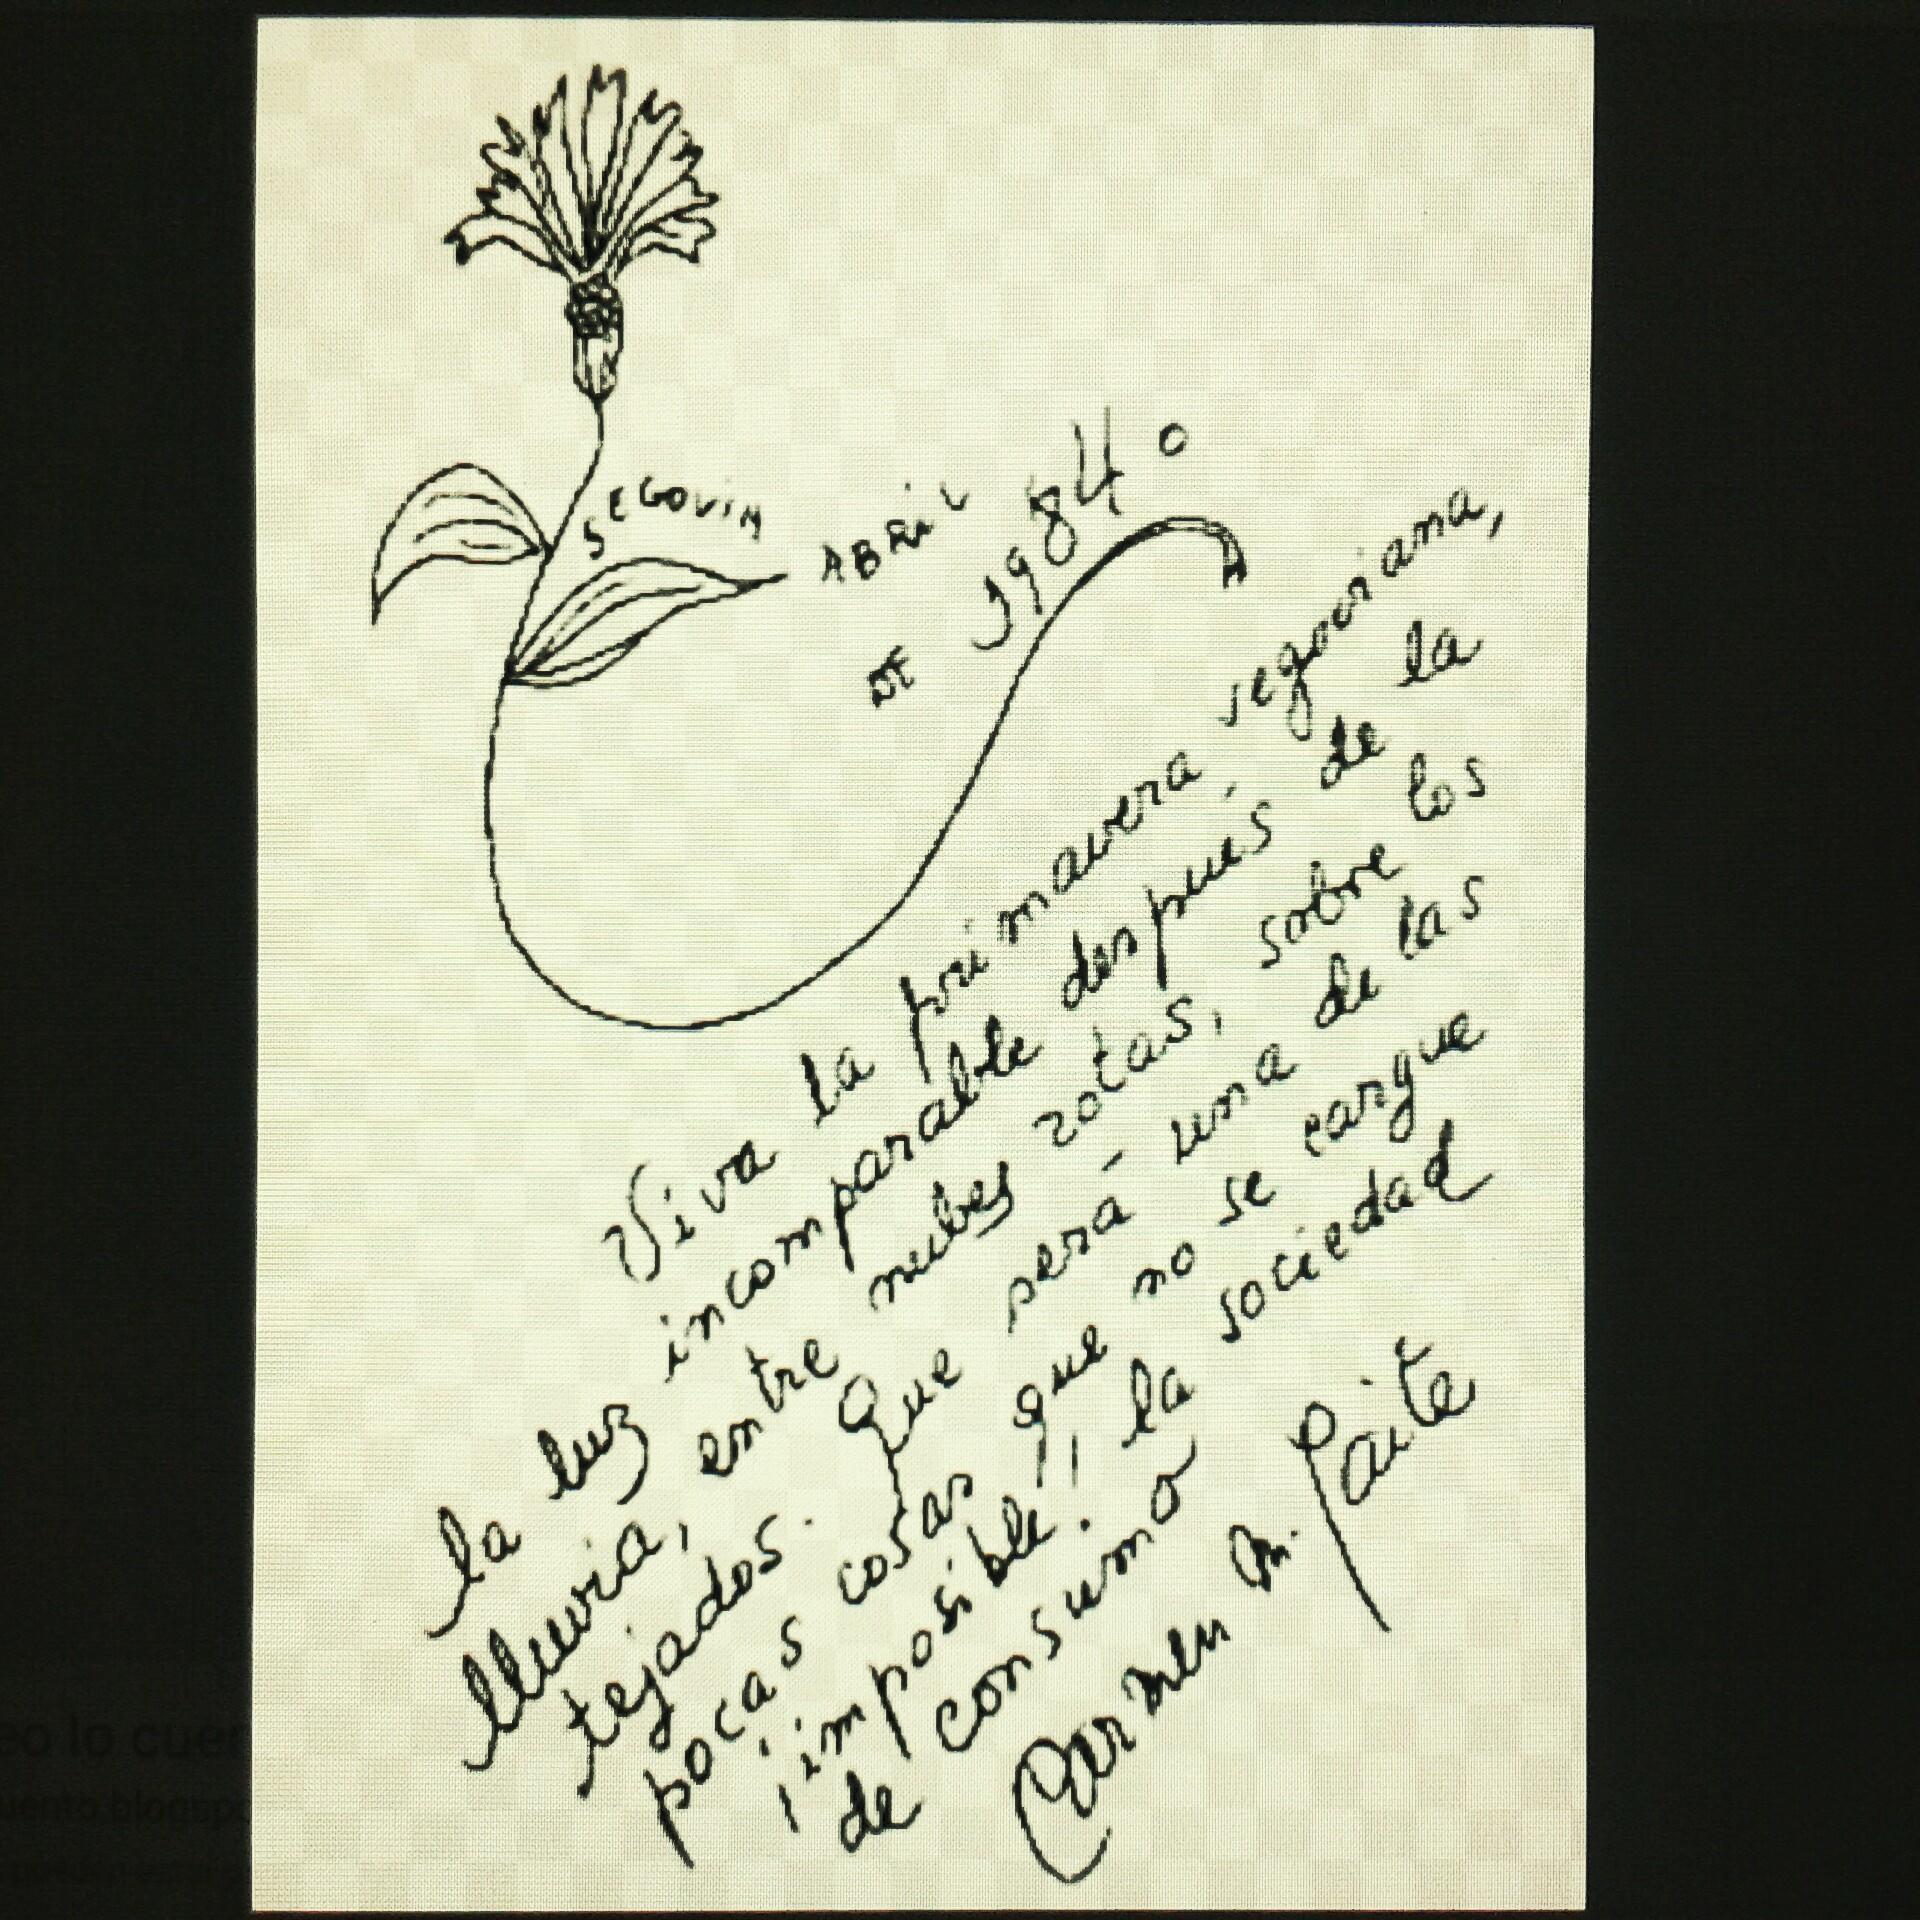 SEGOVIA
ABRIL
DE 1984
Viva la primavera segoviana,
la luz incomparable después de la
lluvia, entre nubes rotas, sobre los
tejados. Que será una de las
pocas cosas que no se cargue
¡imposible! la sociedad
de consumo
Carmen M. Gaite
eo lo cuen
uento.blogspo